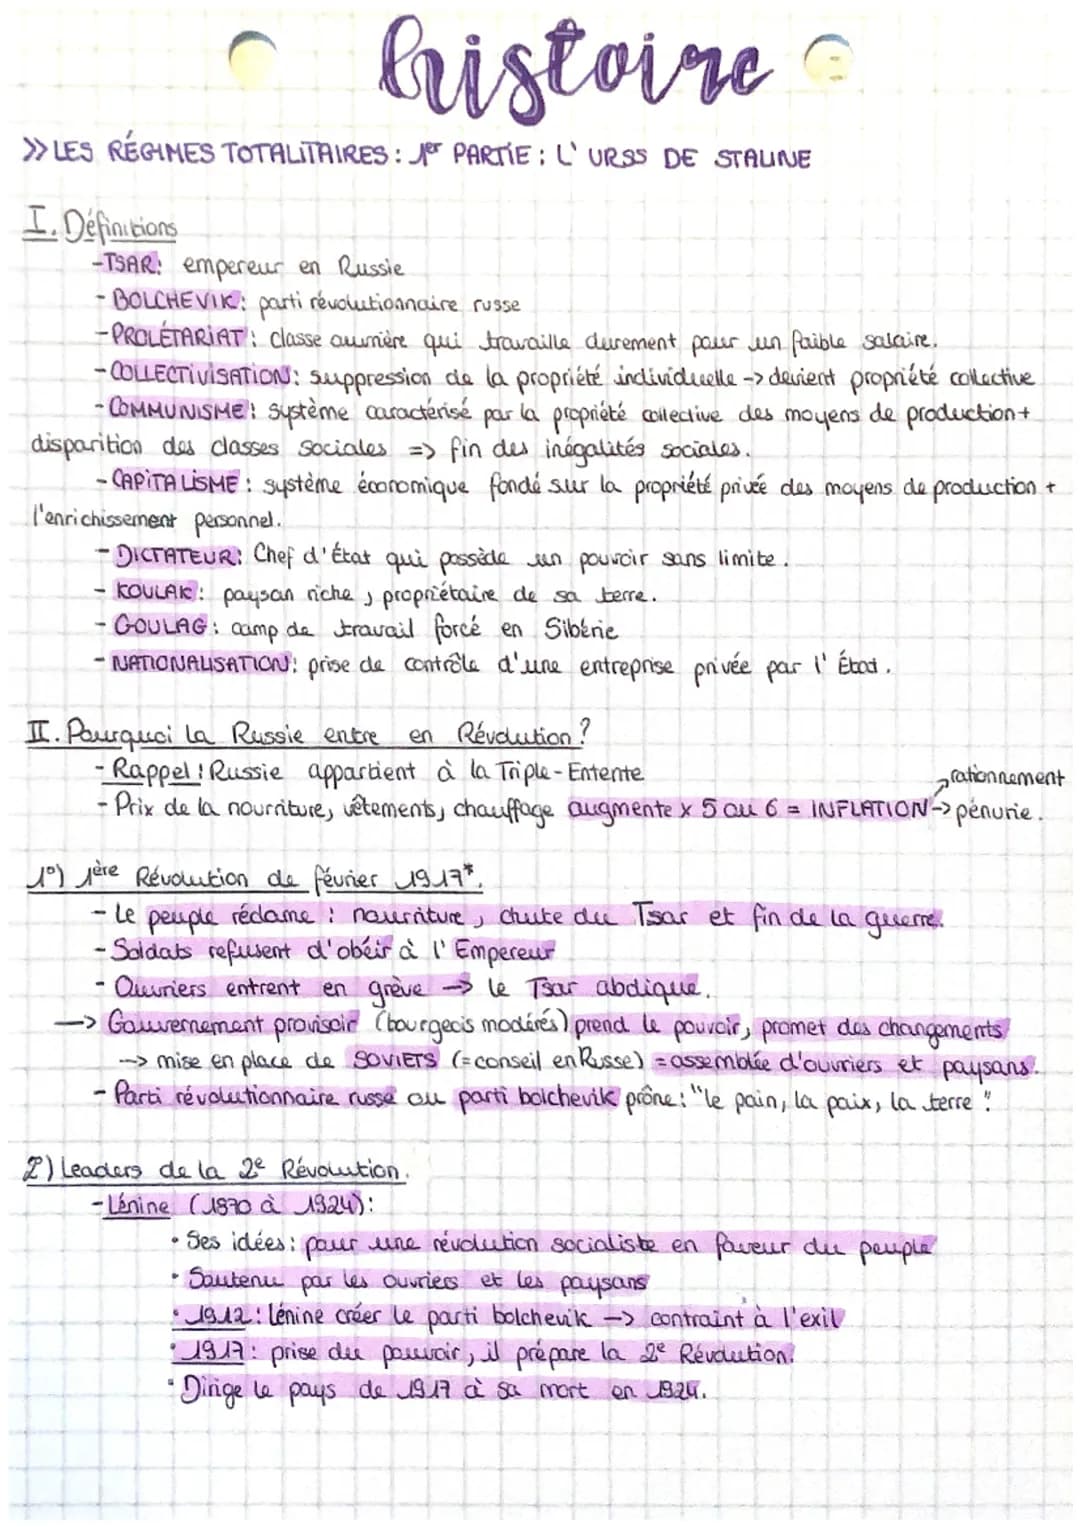 histoire
>> LES RÉGIMES TOTALITAIRES : 1er PARTIE : L' URSS DE STALINE
I. Définitions
-TSAR: empereur en Russie
- BOLCHEVIK: parti révolutionnaire russe
-PROLÉTARIAT: classe ouvrière qui travaille durement pour un faible salaire.
-COLLECTIVISATION: suppression de la propriété individuelle -> devient propriété collective
-COMMUNISME: système caractérisé par la propriété collective des moyens de production+
disparition des classes sociales => fin des inégalités sociales.
- CAPITALISME : système économique fondé sur la propriété privée des moyens de production +
l'enrichissement personnel.
- DICTATEUR: Chef d'État qui possède un pouvoir sans limite.
- KOULAK : paysan riche, propriétaire de sa terre.
- GOULAG : camp de travail forcé en Sibérie
- NATIONALISATION: prise de contrôle d'une entreprise privée par l' État.
II. Pourquoi la Russie entre en Révolution ?
- Rappel : Russie appartient à la Triple-Entente
-> rationnement
- Prix de la nourriture, vêtements, chauffage augmente x 5 ou 6 = INFLATION -> pénurie.
1°) 1ère Révolution de février 1917*.
- Le peuple réclame : nourriture, chute du Tsar et fin de la guerre.
- Soldats refusent d'obéir à l' Empereur
- Ouvriers entrent en grève -> le Tsar abdique.
-> Gouvernement provisoir (bourgeois modérés) prend le pouvoir, promet des changements
-> mise en place de SOVIETS (= conseil en Russe) = assemblée d'ouvriers et paysans.
- Parti révolutionnaire russe ou parti bolchevik prône: "le pain, la paix, la terre".
2) Leaders de la 2e Révolution.
- Lénine (1870 à 1924):
• Ses idées: pour une révolution socialiste en faveur du peuple
• Soutenu par les ouvriers et les paysans
• 1912 : Lénine créer le parti bolchevik -> contraint à l'exil
• 1917: prise du pouvoir, il prépare la 2e Révolution.
• Dirige le pays de 1917 à sa mort en 1924.